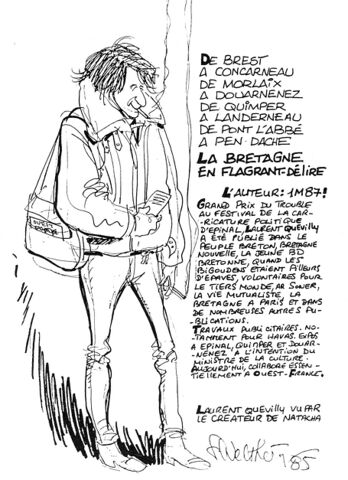 DE BREST
A CONCARNEAU
DE MORLAIX
A DOUARNENEZ
DE QUIMPER
A LANDERNEAU
DE PONT L'ABBÉ
A PEN-DACHE
LA BRETAGNE
EN FLAGRANT-DÉLIRE
L'AUTEUR: 1M87!
GRAND PRIX DU TROUBLE
AU FESTIVAL DE LA CAR-
RICATURE POLITIQUE
D'EPINAL, LAURENT QUEVILLY
A ÉTÉ PUBLIÉ DANS LE
PEUPLE BRETON, BRETAGNE
NOUVELLE, LA JEUNE BD
BRETONNE, QUAND LES
BIGOUDENS ETAIENT PILLEURS
D'ÉPAVES, VOLONTAIRES POUR
LE TIERS MONDE, AR SONER,
LA VIE MUTUALISTE, LA
BRETAGNE A PARIS ET DANS
DE NOMBREUSES AUTRES PU-
BLICATIONS.
TRAVAUX PUBLICITAIRES. NO-
TAMMENT POUR HAVAS. EXPOS
A EPINAL, QUIMPER ET DOUAR-
NENEZ A L'INTENTION DU
MINISTRE DE LA CULTURE.
AUJOURD'HUI, COLLABORE ESSEN-
TIELLEMENT A OUEST-FRANCE.
LAURENT QUEVILLY VU PAR
LE CREATEUR DE NATACHA
Walthéry 85